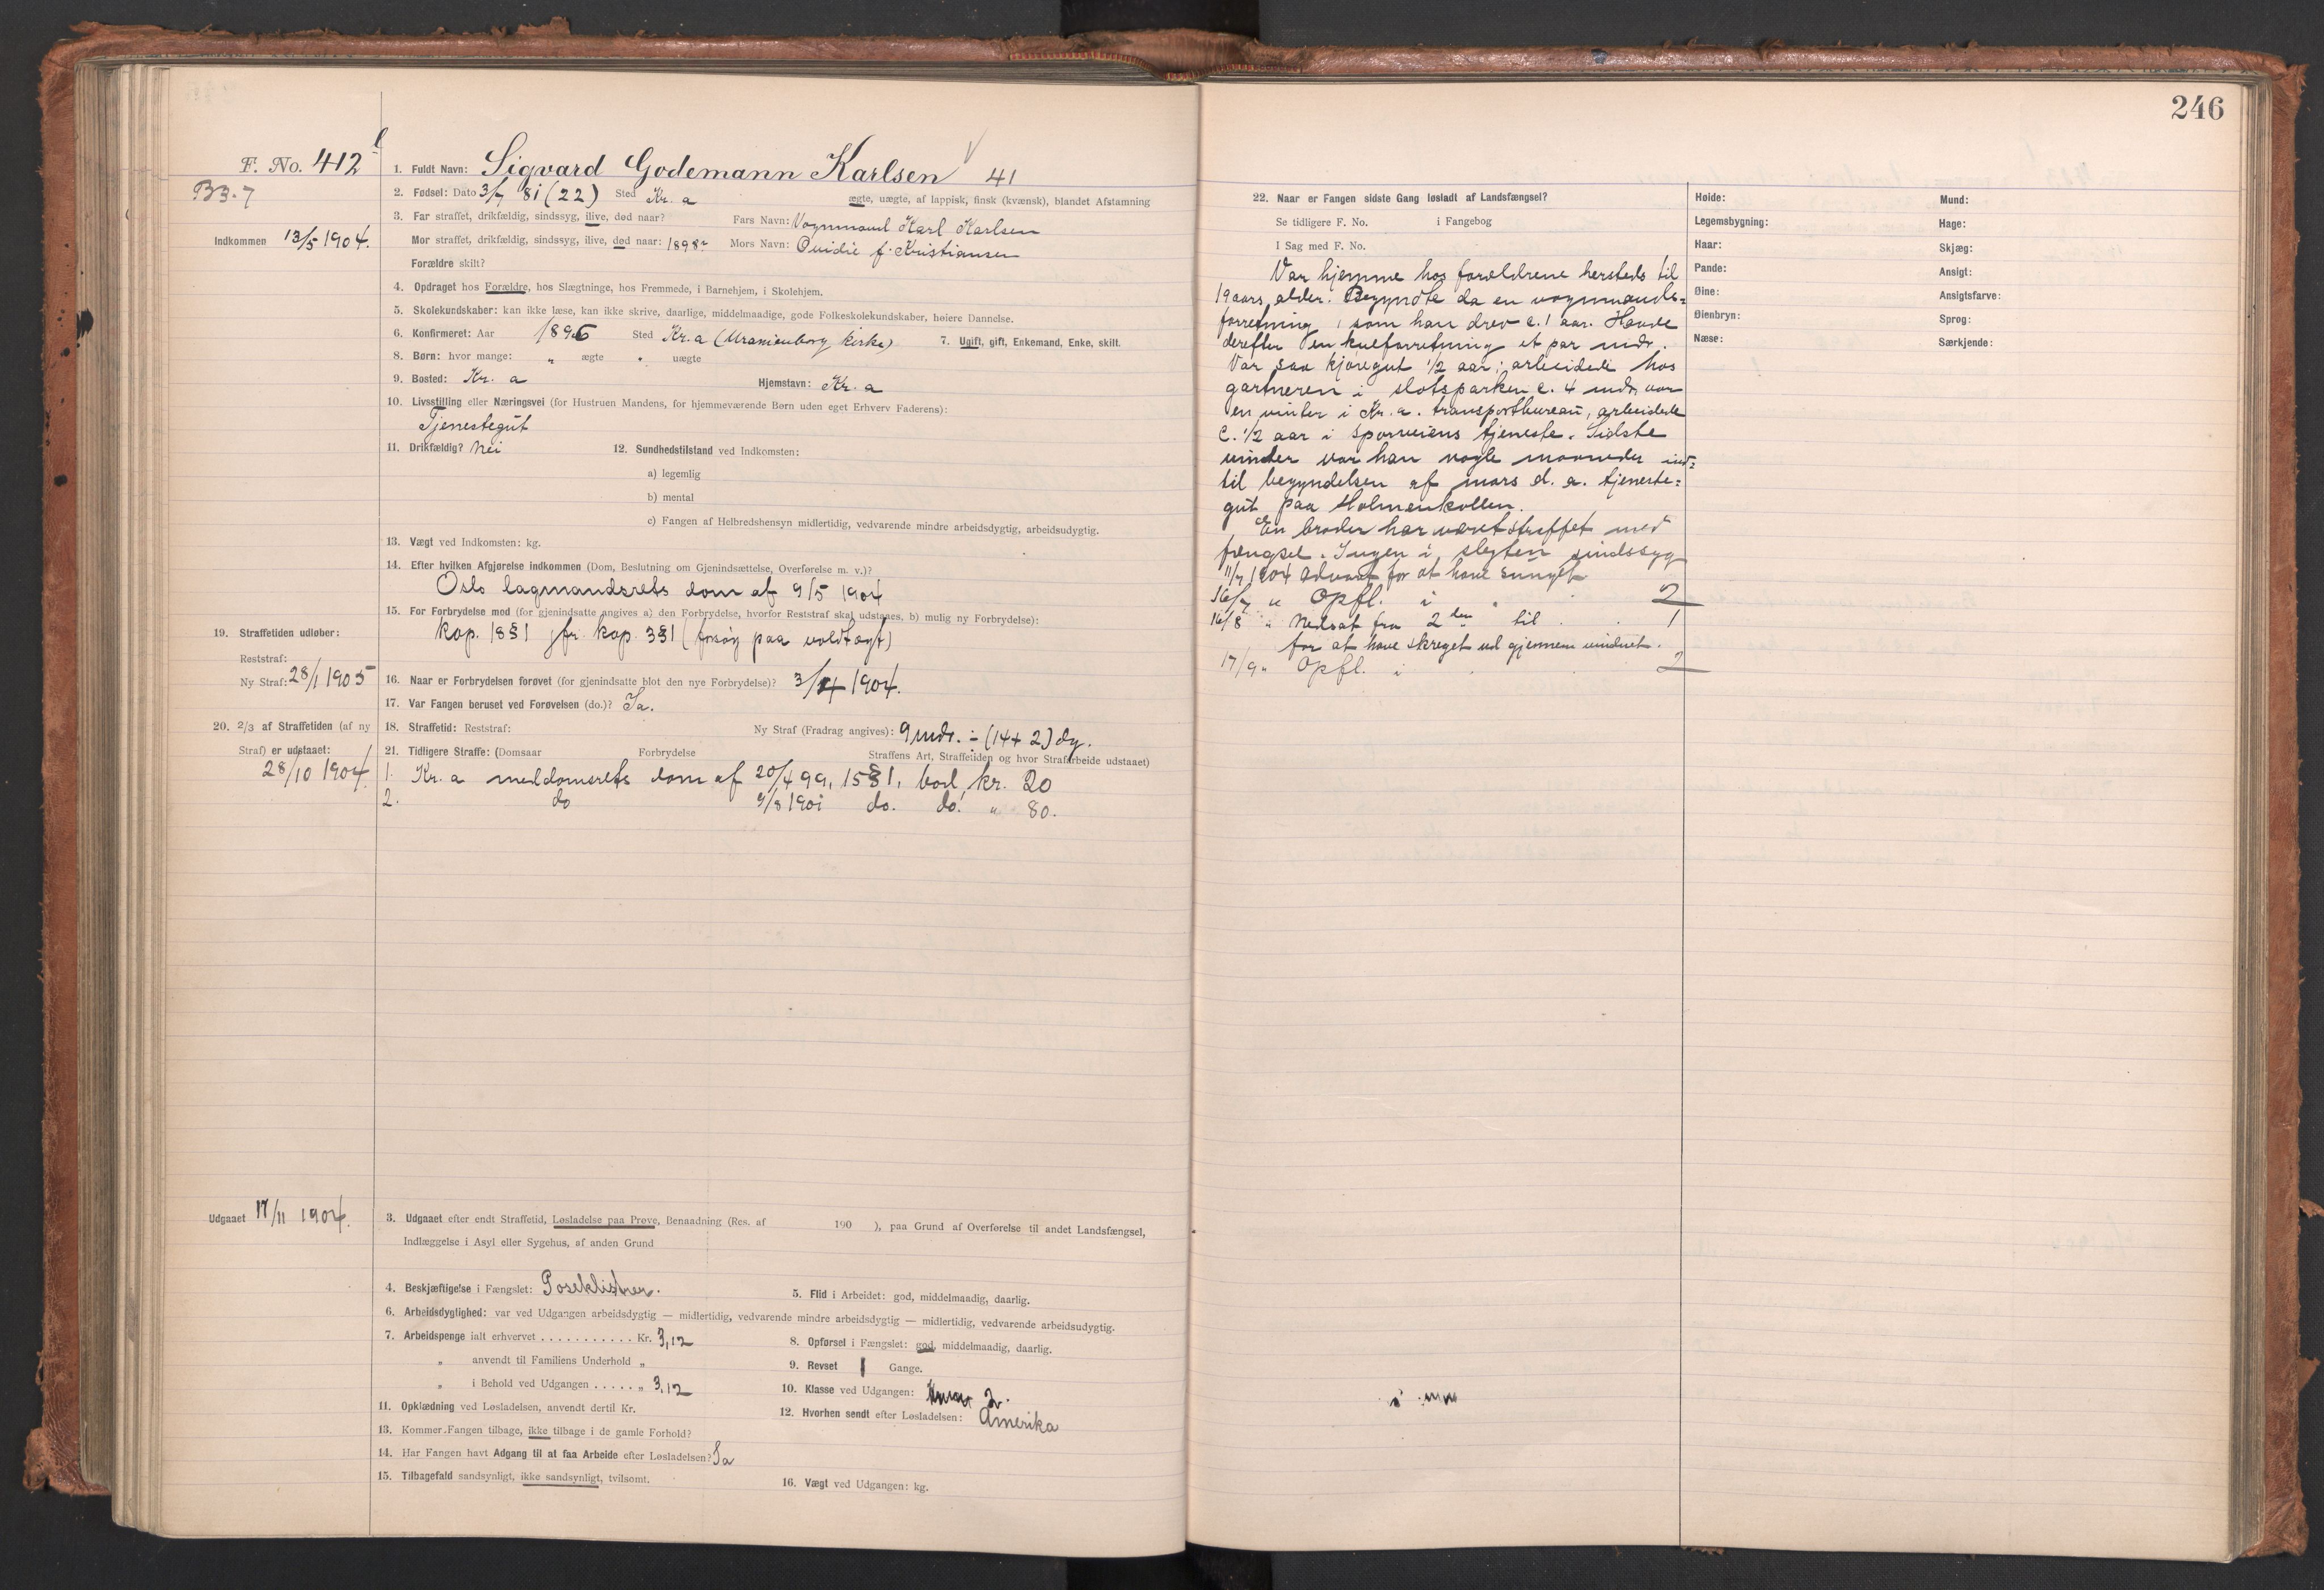 246
F. No. 412
B3.7
Indkommen 13/5 1904.
1. Fuldt Navn: Sigvard Godemann Karlsen 41
2. Fødsel: Dato 3/7 81 (22) Sted Kr. a ægte, uægte, af lappisk, finsk (kvænsk), blandet Afstamning
3. Far straffet, drikfældig, sindssyg, ilive, død naar? Fars Navn: Vognmand Karl Karlsen
Mor straffet, drikfældig, sindssyg, ilive, død naar: 1898 Mors Navn: Ovidie f. Kristiansen
Forældre skilt?
4. Opdraget hos Forældre, hos Slægtninge, hos Fremmede, i Barnehjem, i Skolehjem.
5. Skolekundskaber: kan ikke læse, kan ikke skrive, daarlige, middelmaadige, gode Folkeskolekundskaber, høiere Dannelse.
6. Konfirmeret: Aar 1896 Sted Kr. a (Uranienborg kirke) 7. Ugift, gift, Enkemand, Enke, skilt.
8. Børn: hvor mange: " ægte " uægte
9. Bosted: Kr. a Hjemstavn: Kr. a
10. Livsstilling eller Næringsvei (for Hustruen Mandens, for hjemmeværende Børn uden eget Erhverv Faderens):
Tjenestegut
11. Drikfældig? Nei 12. Sundhedstilstand ved Indkomsten:
a) legemlig
b) mental
c) Fangen af Helbredshensyn midlertidig, vedvarende mindre arbeidsdygtig, arbeidsudygtig.
13. Vægt ved Indkomsten: kg.
14. Efter hvilken Afgjørelse indkommen (Dom, Beslutning om Gjenindsættelse, Overførelse m. v.)?
Oslo lagmandsrets dom af 9/5 1904
15. For Forbrydelse mod (for gjenindsatte angives a) den Forbrydelse, hvorfor Reststraf skal udstaaes, b) mulig ny Forbrydelse):
kap. 18 § 1 jfr. kap. 3 § 1 (forsøg paa voldtægt)
19. Straffetiden udløber:
Reststraf:
Ny Straf: 28/1 1905
16. Naar er Forbrydelsen forøvet (for gjenindsatte blot den nye Forbrydelse)? 3/4 1904.
17. Var Fangen beruset ved Forøvelsen (do.)? Ja.
20. 2/3 af Straffetiden (af ny
Straf) er udstaaet:
28/10 1904
18. Straffetid: Reststraf: Ny Straf (Fradrag angives): 9 mdr. ÷ (14 + 2) dg.
21. Tidligere Straffe: (Domsaar Forbrydelse Straffens Art, Straffetiden og hvor Strafarbeide udstaaet)
1. Kr. a meddomsrets dom af 20/4 99, 15 § 1, bod, kr. 20
2. do 9/8 1901 do. do. " 80.
Udgaaet 17/11 1904.
3. Udgaaet efter endt Straffetid, Løsladelse paa Prøve, Benaadning (Res. af 190 ), paa Grund af Overførelse til andet Landsfængsel,
Indlæggelse i Asyl eller Sygehus, af anden Grund
4. Beskjæftigelse i Fængslet: Poseklistrer. 5. Flid i Arbeidet: god, middelmaadig, daarlig.
6. Arbeidsdyglighed: var ved Udgangen arbeidsdygtig — midlertidig, vedvarende mindre arbeidsdygtig — midlertidig, vedvarende arbeidsudygtig.
7. Arbeidspenge ialt erhvervet . . . . . . . . . . . Kr. 3,12 8. Opførsel i Fængslet: god, middelmaadig, daarlig.
" anvendt til Familiens Underhold " 9. Revset 1 Gange.
" i Behold ved Udgangen . . . . . " 3,12 10. Klasse ved Udgangen: 2.
11. Opklædning ved Løsladelsen, anvendt dertil Kr. 12. Hvorhen sendt efter Løsladelsen: Amerika
13. Kommer Fangen tilbage, ikke tilbage i de gamle Forhold?
14. Har Fangen havt Adgang til at faa Arbeide efter Løsladelsen? Ja
15. Tilbagefald sandsynligt, ikke sandsynligt, tvilsomt. 16. Vægt ved Udgangen: kg.
22. Naar er Fangen sidste Gang løsladt af Landsfængsel?
Se tidligere F. No. i Fangebog
I Sag med F. No.
Var hjemme hos forældrene hersteds til
19 aars alder. Begyndte da en vognmands=
forretning, som han drev c. 1 aar. Havde
derefter en kulforretning et par mdr.
Var saa kjøregut 1/2 aar; arbeidede hos
gartneren i slotsparken c. 4 mdr, var
en vinter i Kr. a. transportbureau, arbeidede
c. 1/2 aar i sporveiens tjeneste. Sidste
vinter var han nogle maaneder ind=
til begyndelsen af mars d. a. tjeneste=
gut paa Holmenkollen.
En broder har været straffet med
fængsel. Ingen i slegten sindssyg
11/7 1904 Advaret for at have sunget
16/7 " Opfl. i " 2
16/8 " Nedsat fra 2den til . . 1
for at have skreget ud gjennem vinduet.
17/9 " Opfl. i . . 2
Høide: Mund:
Legemsbygning: Hage:
Haar: Skjæg:
Pande: Ansigt:
Øine: Ansigtsfarve:
Øienbryn: Sprog:
Næse: Særkjende: